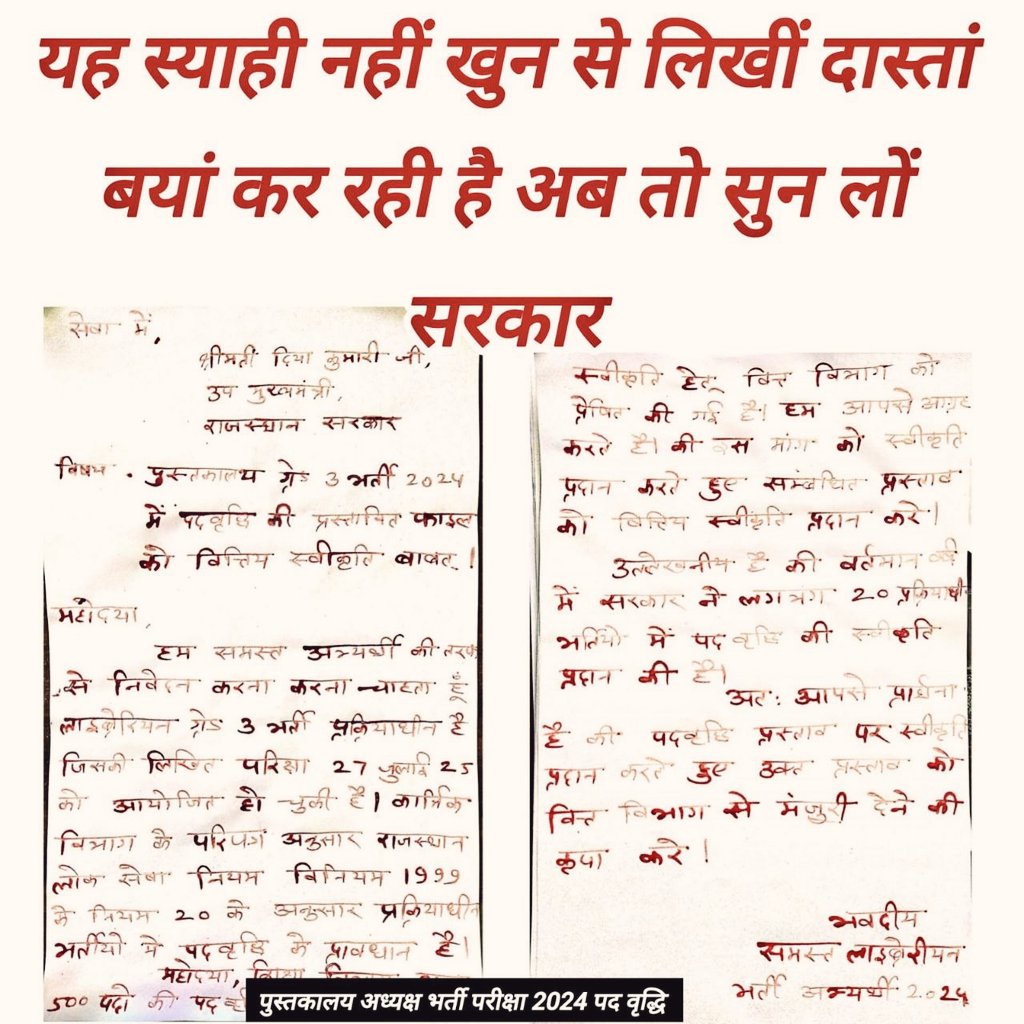 यह स्याही नहीं खुन से लिखीं दास्तां
बयां कर रही है अब तो सुन लों
सरकार
सेवा में,
श्रीमती दिया कुमारी जी,
उप मुख्यमंत्री,
राजस्थान सरकार
विषय . पुस्तकालय ग्रेड 3 भर्ती 2024
में पदवृद्धि की प्रस्तावित फाइल
को वित्तिय स्वीकृति बाबत.।
महोदया,
हम समस्त अभ्यर्थी की तरफ
से निवेदन करना करना चाहता हूँ
लाइब्रेरियन ग्रेड 3 भर्ती प्रक्रियाधीन है
जिसकी लिखित परिक्षा 27 जुलाई 25
को आयोजित हो चुकी है। कार्मिक
विभाग के परिपत्र अनुसार राजस्थान
लोक सेवा नियम विनियम 1999
के नियम 20 के अनुसार प्रक्रियाधीन
भर्तीयो मे पदवृद्धि के प्रावधान है।
महोदया, शिक्षा
500 पदो की पद
स्वीकृति हेतू वित्त विभाग को
प्रेषित की गई है। हम आपसे आग्रह
करते है। की इस मांग को स्वीकृति
प्रदान करते हुए सम्बंधित प्रस्ताव
को वित्तिय स्वीकृति प्रदान करे।
उल्लेखनीय है की वर्तमान वर्ष
में सरकार ने लगभग 20 प्रक्रियाधी
भर्तियो में पदवृद्धि की स्वीकृति
प्रदान की है।
अत: आपसे प्रार्थना
है की पदवृद्धि प्रस्ताव पर स्वीकृति
प्रदान करते हुए उक्त प्रस्ताव को
वित्त विभाग से मंजुरी देने की
कृपा करे।
भवदीय
समस्त लाइब्रेरीयन
भर्ती अभ्यर्थी 2024
पुस्तकालय अध्यक्ष भर्ती परीक्षा 2024 पद वृद्धि